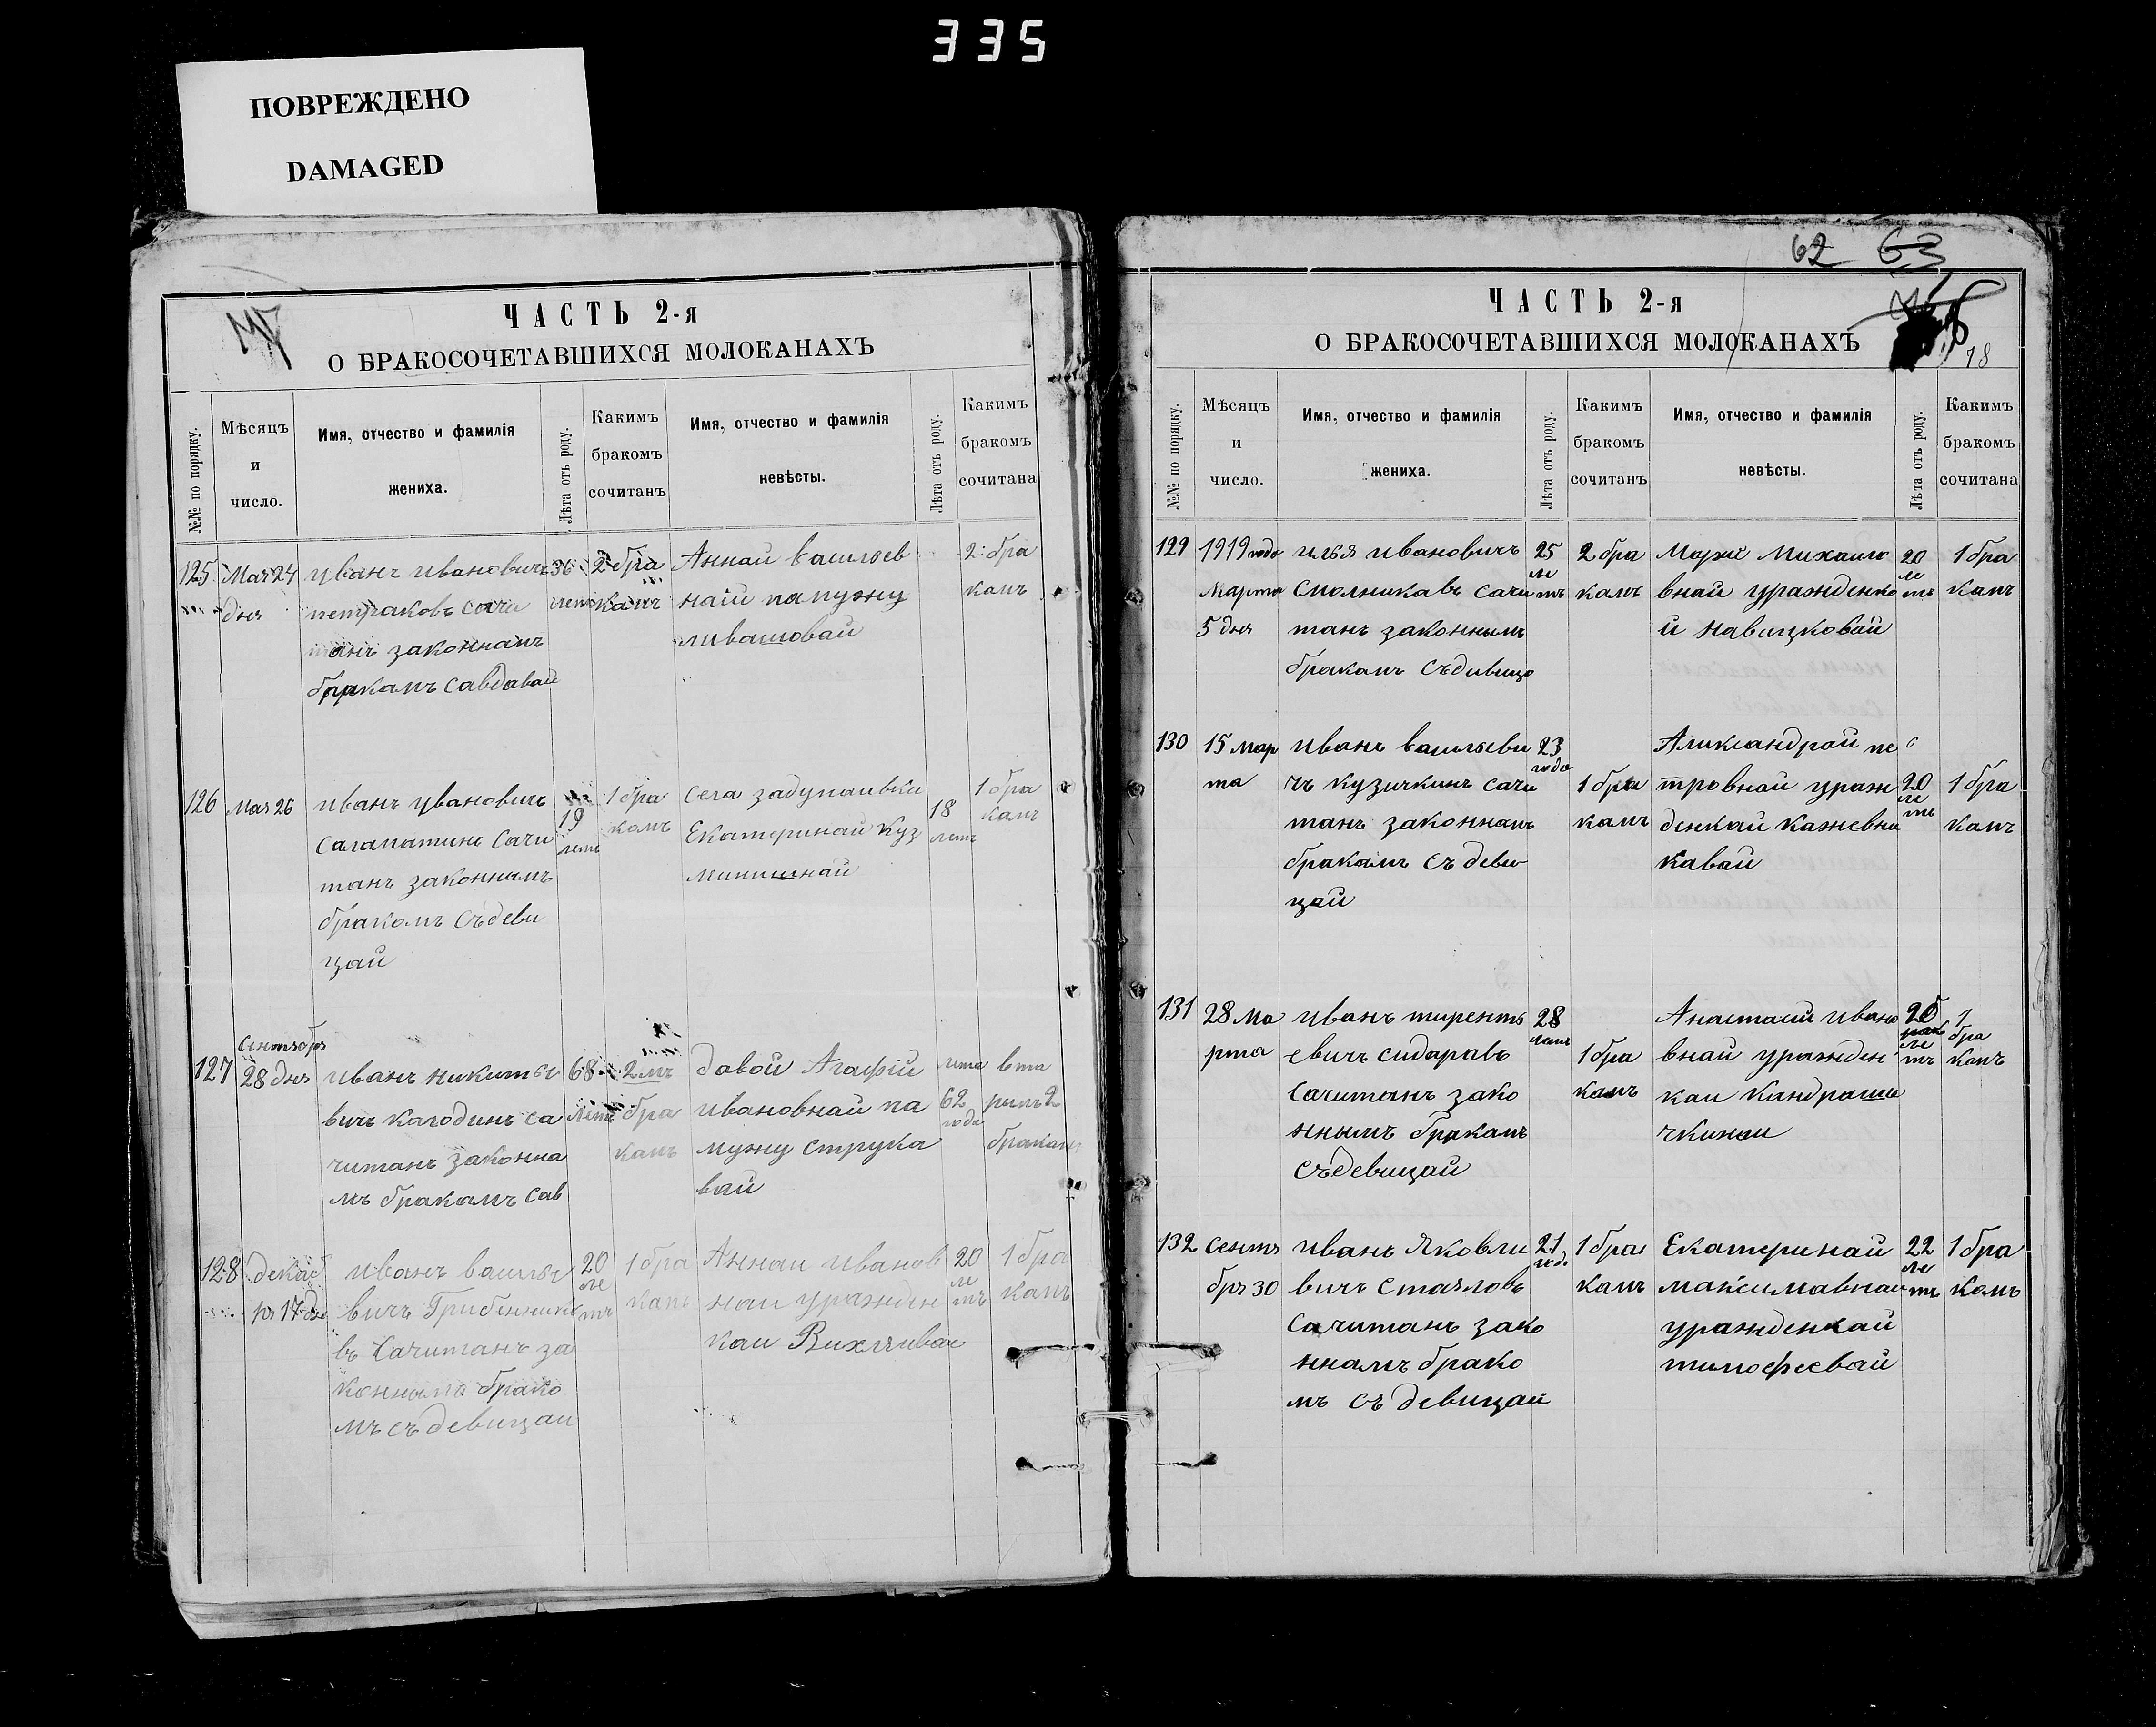 335
ПОВРЕЖДЕНО
DAMAGED
ЧАСТЬ 2-я
О БРАКОСОЧЕТАВШИХСЯ МОЛОКАНАХЪ
№№ по порядку.
Мѣсяцъ
и
число.
Имя, отчество и фамилія
жениха.
Лѣта отъ роду.
Какимъ
бракомъ
сочитанъ
Имя, отчество и фамилія
невѣсты.
Лѣта отъ роду.
Какимъ
бракомъ
сочитана
125
Мая 24
дня
иванъ ивановичъ
петраковъ сачи
танъ законнамъ
бракамъ савдавай
36
летъ
2 бра
камъ
Аннай васильев
най па мужу
ливашовай
2 бра
камъ
126
Мая 26
иванъ ивановичъ
саламатинъ сачи
танъ законнымъ
бракомъ съ деви
цай
19
летъ
1 бра
камъ
села задунаивки
Екатеринай куз
минишнай
18
летъ
1 бра
камъ
127
сентября
28 дня
иванъ никитье
вичъ калодинъ са
читанъ законна
мъ бракамъ сав
68
лета
2 мъ
бра
камъ
давой Агафий
ивановнай па
мужу струка
вай
лета
62
года
вта
рымъ 2
бракамъ
128
декаб
ря 17 дня
иванъ василье
вичъ Грибеннико
въ сачитанъ за
коннымъ брако
мъ съ девицаи
20
ле
тъ
1 бра
камъ
Аннаи иванов
наи уражден
каи Вихлявае
20
ле
тъ
1 бра
камъ
62 63
78
ЧАСТЬ 2-я
О БРАКОСОЧЕТАВШИХСЯ МОЛОКАНАХЪ
№№ по порядку.
Мѣсяцъ
и
число.
Имя, отчество и фамилія
жениха.
Лѣта отъ роду.
Какимъ
бракомъ
сочитанъ
Имя, отчество и фамилія
невѣсты.
Лѣта отъ роду.
Какимъ
бракомъ
сочитана
129
1919 года
марта
5 дня
илья ивановичъ
смольникавъ сачи
танъ законнымъ
бракамъ съ дивицо
25
ле
тъ
2 бра
камъ
Марие Михаило
внай уражденко
й Навицковай
20
ле
тъ
1 бра
камъ
130
15 мар
та
иванъ васильеви
чъ кузичкинъ сачи
танъ законнамъ
бракамъ съ деви
цай
23
года
1 бра
камъ
Аликсандрой пе
тровнай ураж
денкай кажевни
кавай
20
ле
тъ
1 бра
камъ
131
28 ма
рта
иванъ тиренть
евичъ сидаравъ
сачитанъ зако
ннымъ бракамъ
съ девицай
28
летъ
1 бра
камъ
Анастасии ивано
внай уражден
каи кандраши
чкинаи
20
ле
тъ
1
бра
камъ
132
сентя
бря 30
иванъ Яковли
вичъ стаяловъ
сачитанъ зако
ннамъ брако
мъ съ девицаи
21
года
1 бра
камъ
Екатеринай
максимавнаи
уражденкай
тимофеевай
22
ле
тъ
1 бра
камъ